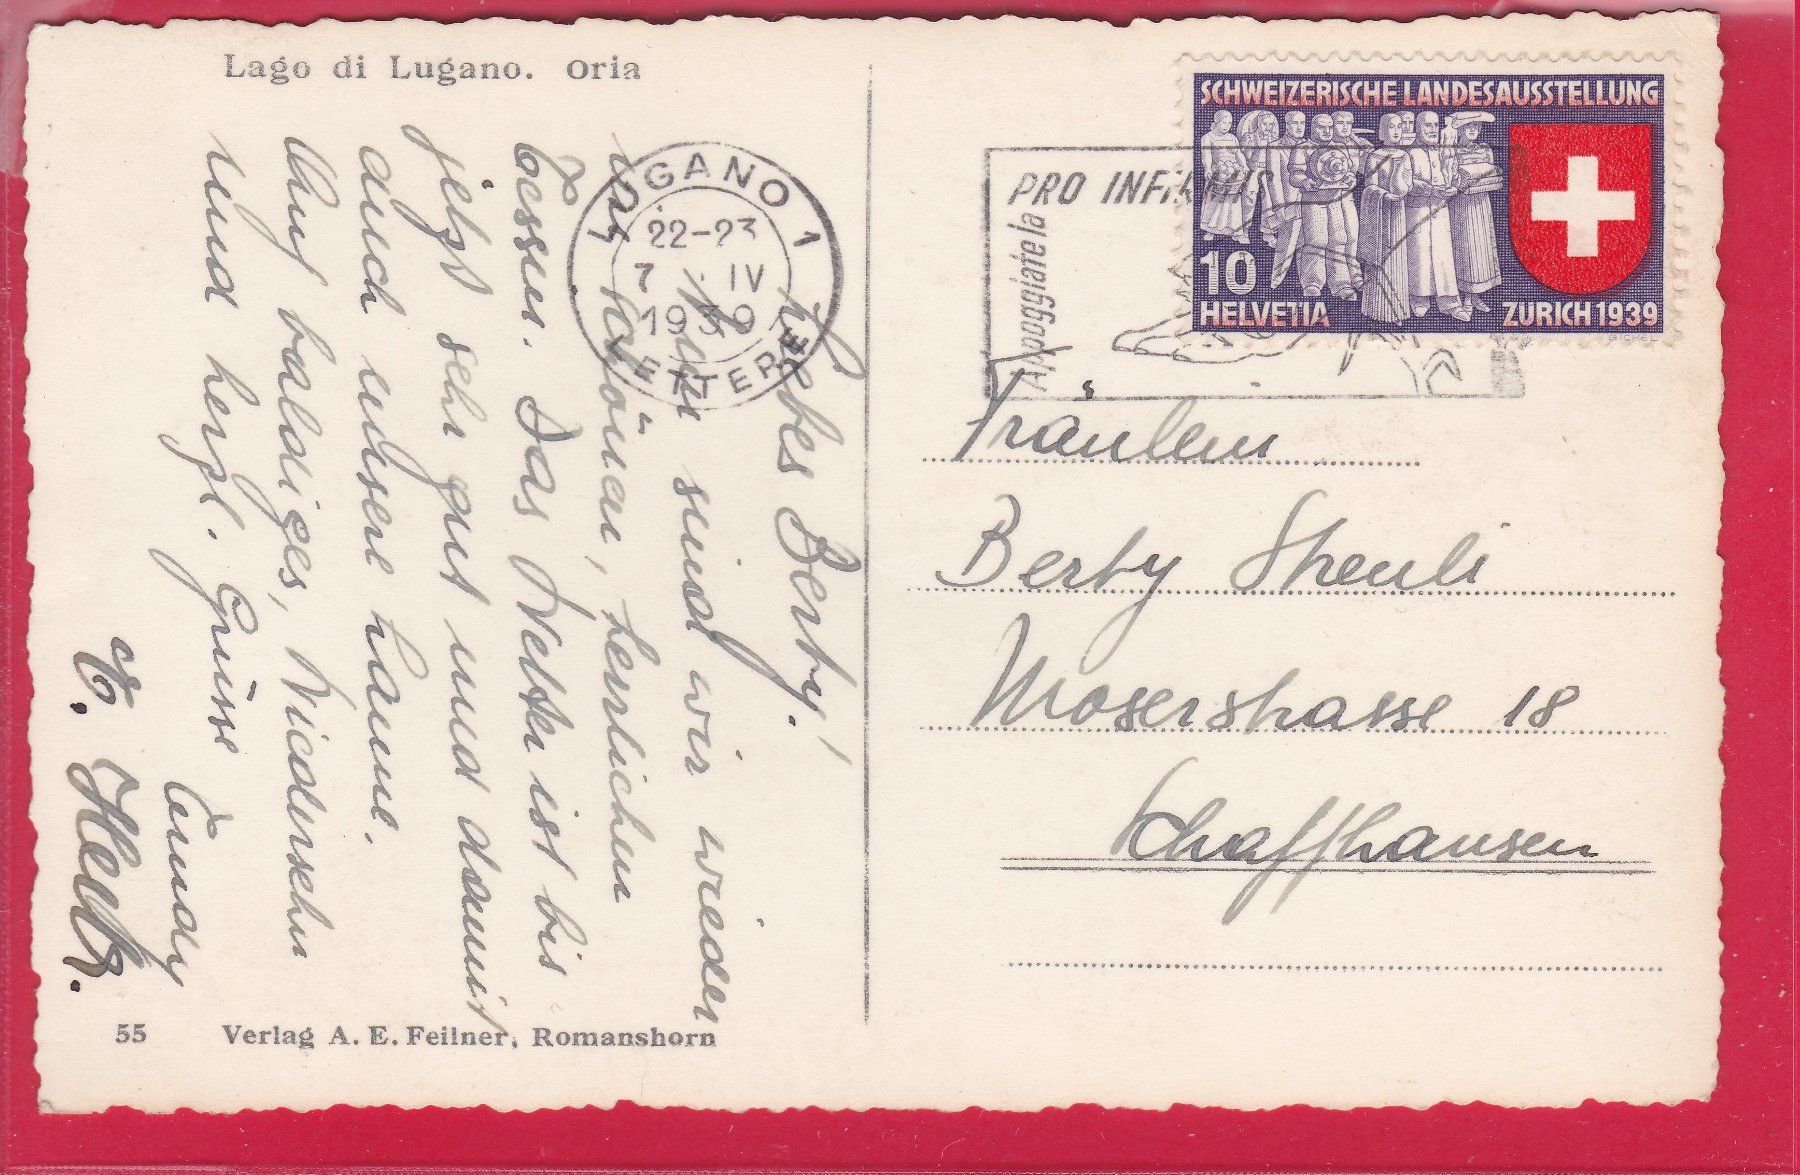 Lago di Lugano. Oria
Liebes Berty!
Nun sind wir wieder
im schönen, herrlichen
Tessin. Das Wetter ist bis
jetzt sehr gut und damit
auch unsere Laune.
Auf baldiges, Wiedersehn
und herzl. Grüsse
55
Verlag A. E. Feilner, Romanshorn
LUGANO 1
22-23
7 IV
1939
LETTERE
PRO INFIRMIS
Appoggiate la
SCHWEIZERISCHE LANDESAUSSTELLUNG
10
HELVETIA
ZÜRICH 1939
Fräulein
Berty
Moserstrasse 18
Schaffhausen